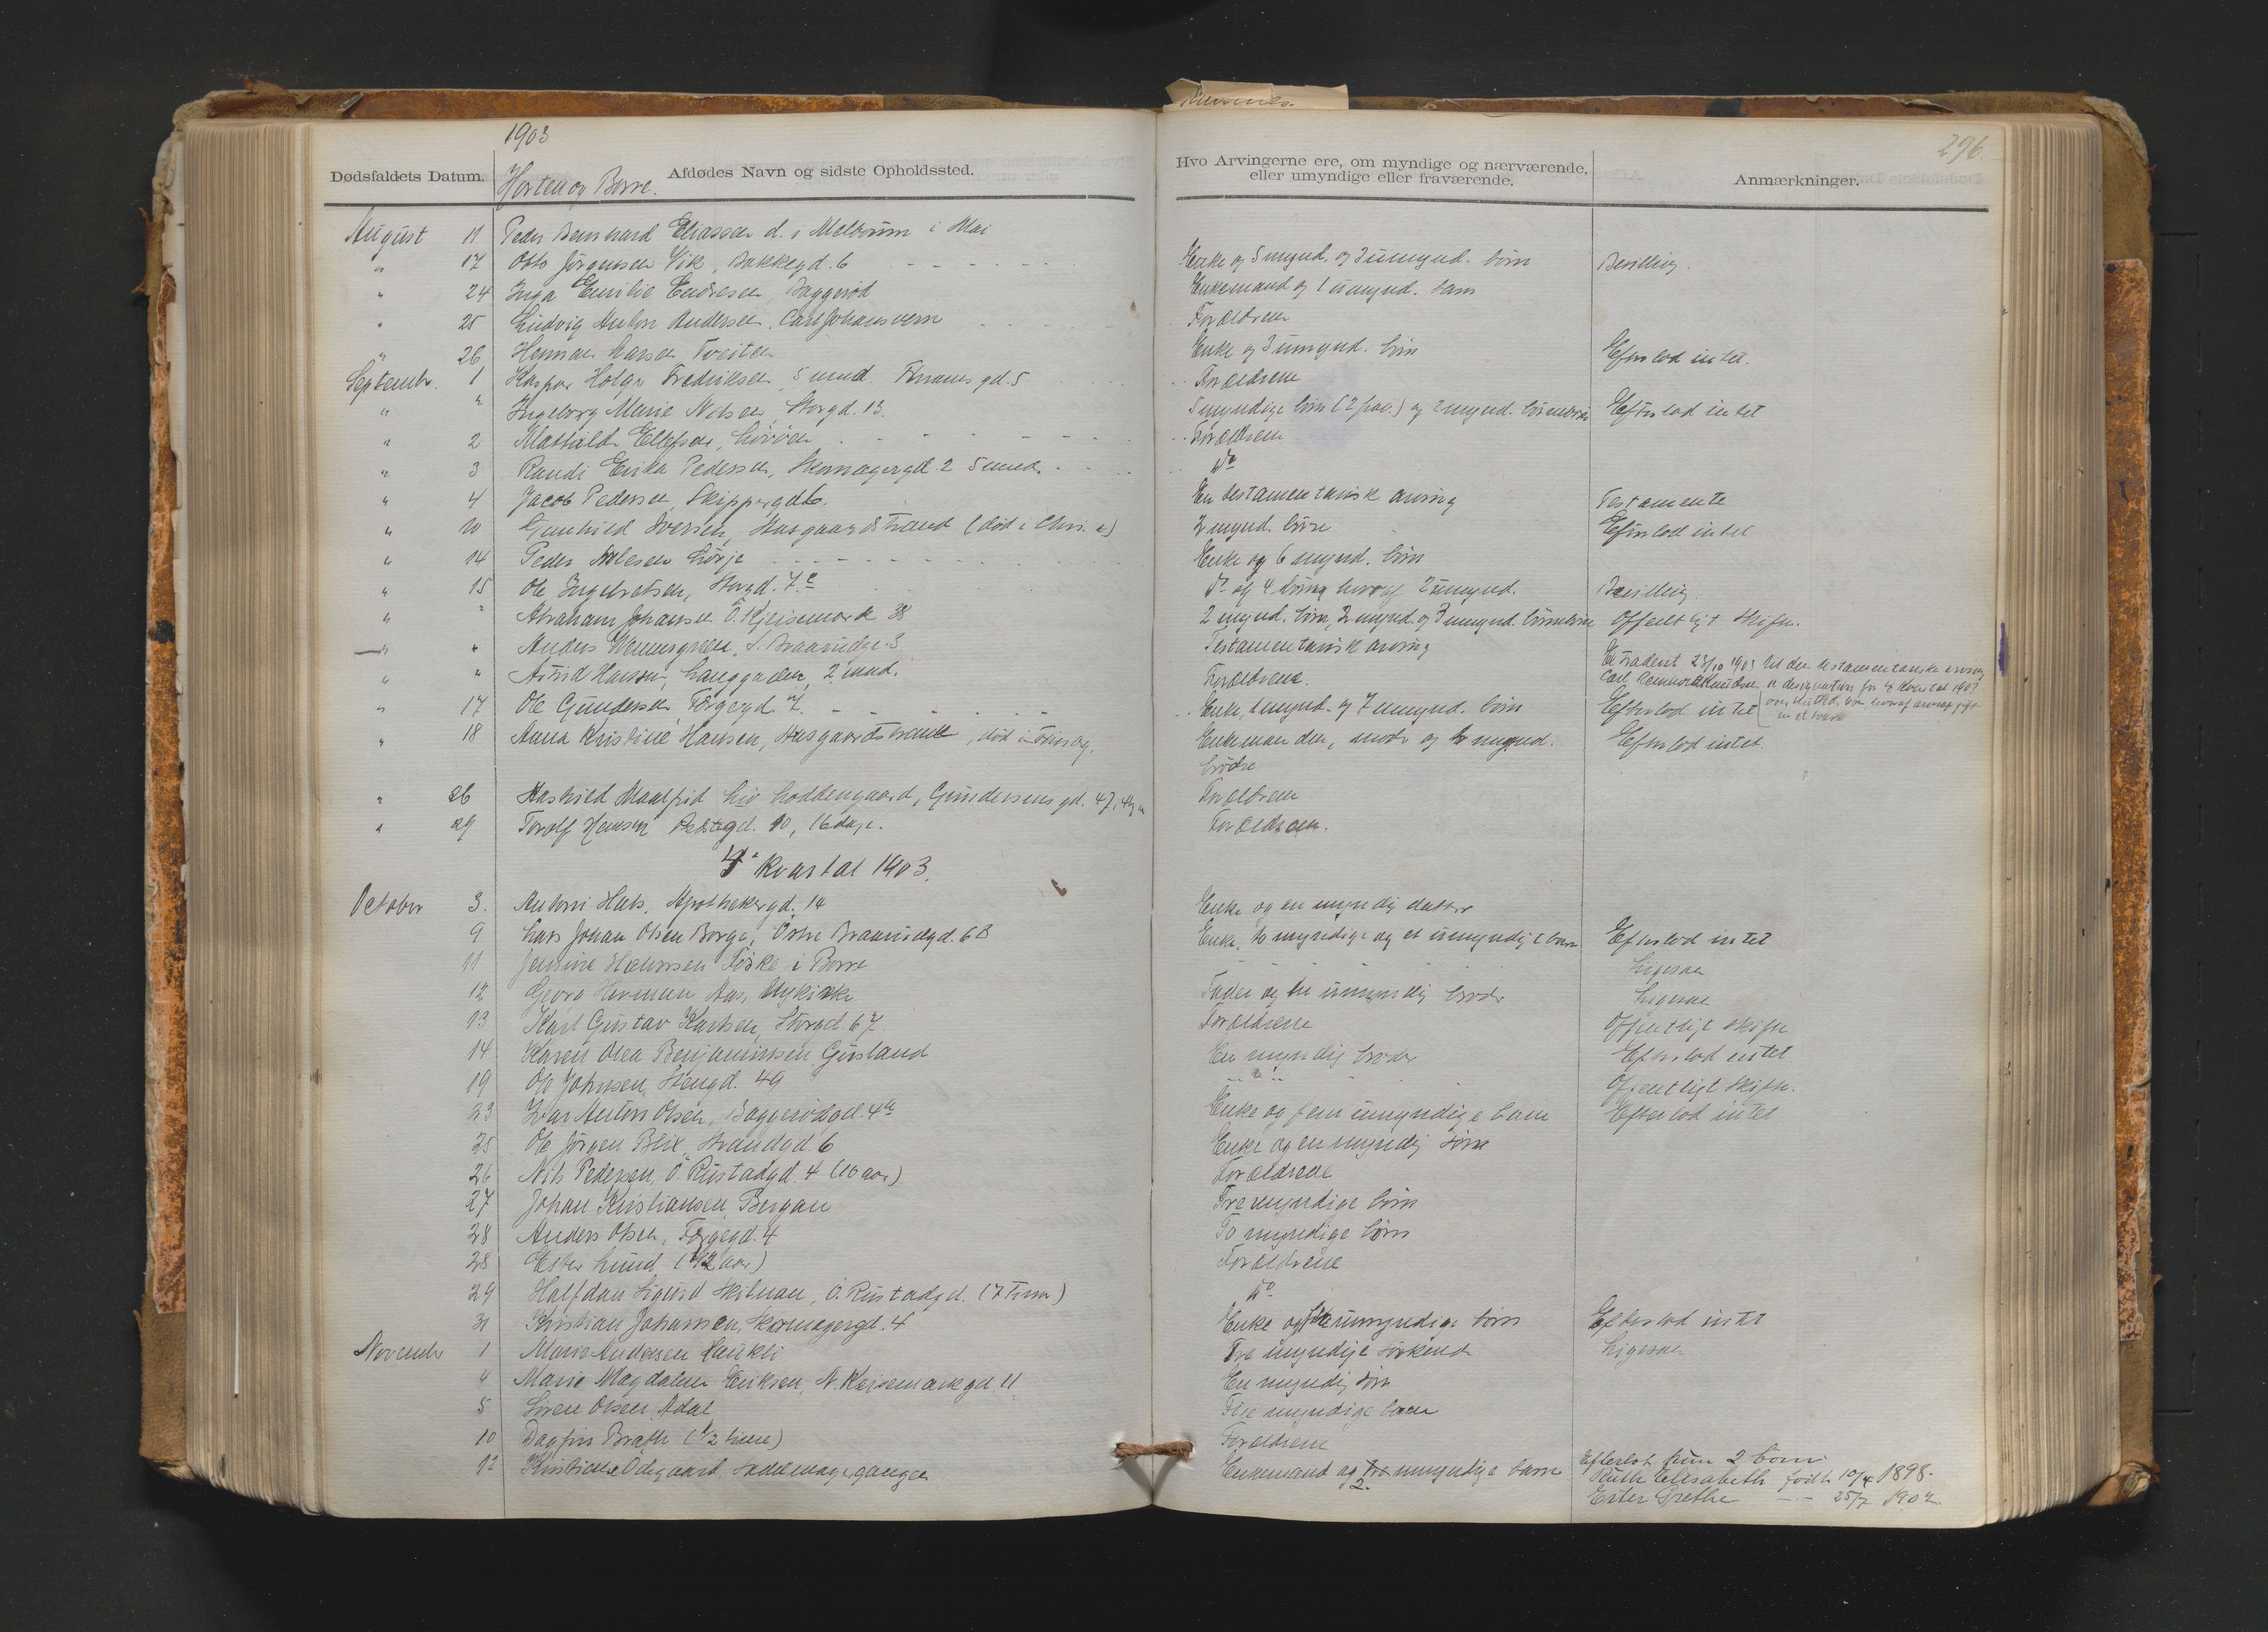 1903
296
Dødsfaldets Datum.
Afdødes Navn og sidste Opholdssted.
Hvo Arvingerne ere, om myndige og nærværende, eller umyndige eller fraværende.
Anmærkninger.
Horten og Borre.
August 11 Peder Bernhard Eliassen d. i Melbourn i Mai
" 17 Otto Jörgensen Vik, Bakkegd. 6 Enke og 5 mynd. og 3 umynd. börn Bevilling.
" 24 Inga Emilie Endresen, Baggeröd Enkemand og 1 umynd. barn
" 25 Ludvig Anton Andersen, Carl Johansvern Forældrene
" 26 Herman Larsen Tveiten Enke og 3 umynd. börn Efterlod intet.
Septembr. 1 Kaspar Holger Fredriksen 5 mnd. gd. 5 Forældrene
" " Ingeborg Marie Nilsen, Storgd. 13. 5 myndige börn (2 frav.) og 2 mynd. börnebörn Efterlod intet
" 2 Mathilde Ellefsen, Lövöen Forældrene
" 3 Randi Erika Pedersen, Skomagergd 2 5 mnd. do
" 4 Jacob Pedersen, Skippergd 6. En testamentarisk arving Testamente
" 10 Gunhild Iversen, Aasgaardstrand (död i Chr.a) 2 mynd. börn Efterlod intet
" 14 Peder Nilsen Lörje Enke og 6 mynd. börn
" 15 Ole Ingebretsen, Storgd. 7 do og 4 börn hvoraf 2 umynd. Bevilling
" " Abraham Johansen Ö. Kjeisemark 38 2 mynd. börn, 2 mynd. og 3 umynd. börnebörn Offentligt Skifte.
" " Anders Wennergreen, S. Braarudgd. 3 Testamentarisk arving Extradert 23/10 1903 til den testamentariske arving
" " Astrid Hansen, Langgaden, 2 mnd. Forældrene. Carl Reinhold Knudsen
" 17 Ole Gundersen, Færgegd. Enke, 1 mynd. og 7 umynd. börn Efterlod intet
" 18 Anna Kristine Hansen, Aasgaardstrand, död i Enkemanden, moder og to mynd. Efterlod intet.
brödre
" 26 Aashild Maalfrid Liv Loddengaard, Gundersens gd. 47, Forældrene
" 29 Torolf Hansen gd. 10, 16 dage. Forældrene.
4de Kvartal 1903.
October 3. Antoni Apothekergd. 14 Enke og en myndig datter
9 Lars Johan Olsen Borge, Östre Braarudgd. 6B Enke, to myndige og et umyndigt barn Efterlod intet
11 Jensine Halvorsen i Borre Ligesaa
12 Georg Herman Aas, Nykirke Fader og en umyndig broder Ligesaa
13 Karl Gustav Karlsen, Storgd. 67 Forældrene Offentligt skifte
14 Karen Olea Benjaminsen Gusland En myndig broder Efterlod intet
19 Ole Johnsen, Stengd. 49 Offentligt Skifte.
23 Ivar Anton Olsen, Baggerödgd. 4 Enke og fem umyndige barn Efterlod intet
25 Ole Jörgen Blix, Strandgd 6 Enke og en myndig sön
26 Nils Pedersen, Ö. Rustadgd. 4 (10 aar) Forældrene
27 Johan Kristiansen Bergan Tre myndige börn
28 Anders Olsen, Færgegd. 4 To myndige börn
28 Ester Lund (1/2 aar) Forældrene
29 Halfdan Sigurd Skibnan, Ö. Rustadgd. (7 Timer) do
31 Kristian Johansen, Skomagergd. 4 Enke og umyndige börn Efterlod intet
November 1 Maria Andersen Tre myndige söskende Ligesaa
4 Marie Magdalene Eriksen, N. Keisemarkgd. 11 En myndig sön
5 Sören Olsen Adal Fire myndige barn
10 Dagfin Brath (1/2 time) Forældrene
12 Kristiane Ödegaard, Sadelmagergangen Enkemand og tre umyndige barn Efterlot hun 2 born
2. Ruth Elisabeth födt 10/4 1898.
Ester Grethe -"- 25/7 1902.